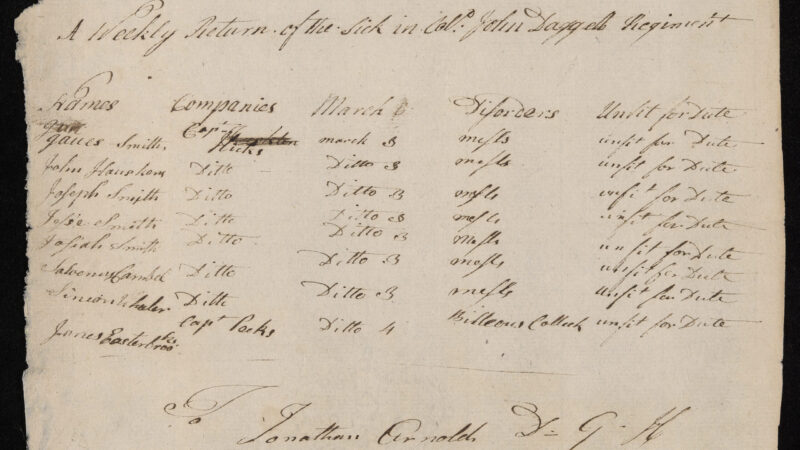 A Weekly Return of the Sick in Col.º John Daggett Regiment
Names Companies March Disorders Unfit for Dute
James Smith, Cap.t Hicks march 3 mesls unfit for Dute
John Ditto Ditto 3 mesls unfit for Dute
Joseph Smith Ditto Ditto 3 mesls unfit for Dute
Jesse Smith Ditto Ditto 3 mesls unfit for Dute
Josiah Smith Ditto Ditto 3 mesls unfit for Dute
Ditto Ditto 3 mesls unfit for Dute
Simeon Ditto Ditto 3 mesls unfit for Dute
James Easterbrooks Cap.t Pecks Ditto 4 Billeous Collick unfit for Dute
To Jonathan Arnold D= G= H